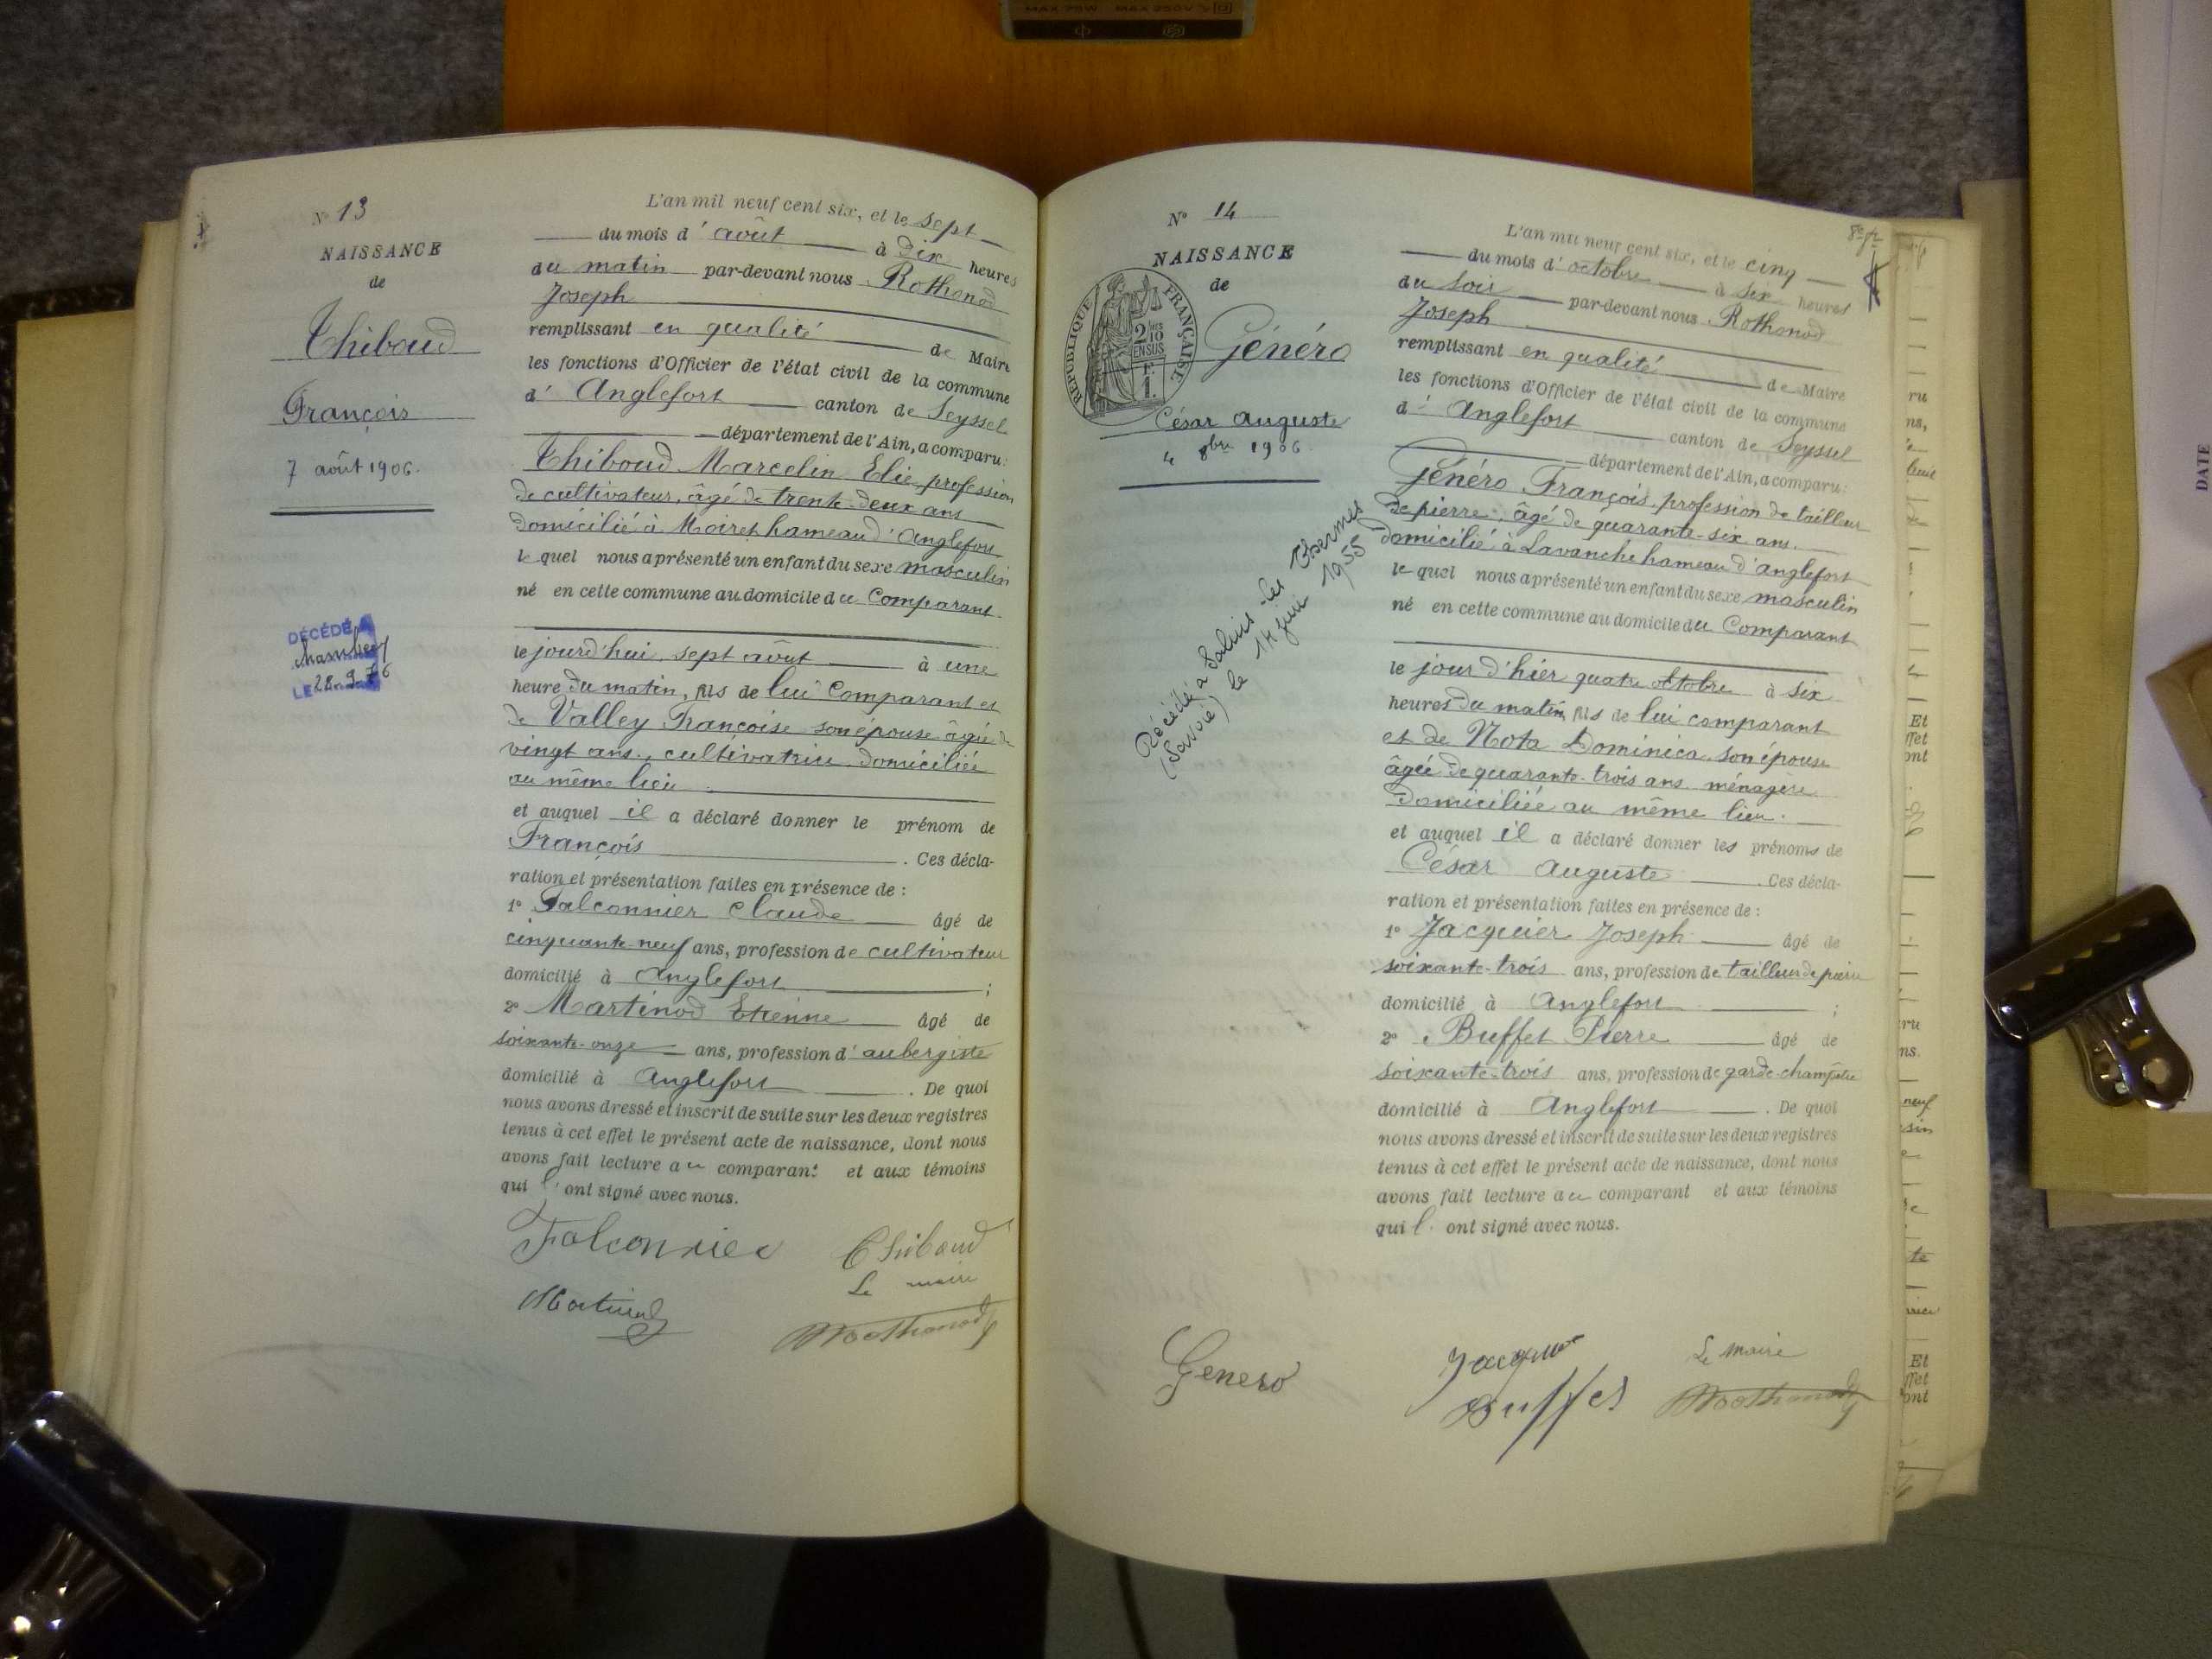 MAX 75W MAX 250V
N° 13
NAISSANCE
de
Thiboud
François
7 août 1906.
DÉCÉDÉ A
Chambéry
LE 28.9.76
L'an mil neuf cent six, et le sept
du mois d'août à dix heures
du matin par-devant nous Rothonod
Joseph
remplissant en qualité de Maire
les fonctions d'Officier de l'état civil de la commune
d' Anglefort canton de Seyssel
département de l'Ain, a comparu:
Thiboud Marcelin Elie, profession
de cultivateur, âgé de trente-deux ans
domicilié à Moiret hameau d'Anglefort
le quel nous a présenté un enfant du sexe masculin
né en cette commune au domicile du Comparant
le jourd'hui, sept août à une
heure du matin, fils de lui Comparant et
de Valley Françoise son épouse âgée de
vingt ans, cultivatrice domiciliée
au même lieu
et auquel il a déclaré donner le prénom de
François. Ces décla-
ration et présentation faites en présence de :
1° Falconnier Claude âgé de
cinquante-neuf ans, profession de cultivateur
domicilié à Anglefort ;
2° Martinod Etienne âgé de
soixante-onze ans, profession d'aubergiste
domicilié à Anglefort. De quoi
nous avons dressé et inscrit de suite sur les deux registres
tenus à cet effet le présent acte de naissance, dont nous
avons fait lecture au comparant et aux témoins
qui l'ont signé avec nous.
Falconnier Thiboud
Le maire
Martinod Rothonod
N° 14
NAISSANCE
de
RÉPUBLIQUE FRANÇAISE
2/10 EN SUS
1.
Généro
César Auguste
4 8bre 1906
Décédé à Salins-les-Thermes
(Savoie) le 14 juin 1955
L'an mil neuf cent six, et le cinq
du mois d'octobre à six heures
du soir par-devant nous Rothonod
Joseph
remplissant en qualité de Maire
les fonctions d'Officier de l'état civil de la commune
d' Anglefort canton de Seyssel
département de l'Ain, a comparu:
Généro François, profession de tailleur
de pierre, âgé de quarante-six ans.
domicilié à Lavanche hameau d'anglefort
le quel nous a présenté un enfant du sexe masculin
né en cette commune au domicile du Comparant
le jour d'hier quatre octobre à six
heures du matin, fils de lui comparant
et de Nota Dominica son épouse
âgée de quarante-trois ans ménagère
domiciliée au même lieu.
et auquel il a déclaré donner les prénoms de
César Auguste. Ces décla-
ration et présentation faites en présence de :
1° Jacquier Joseph âgé de
soixante-trois ans, profession de tailleur de pierre
domicilié à Anglefort ;
2° Buffet Pierre âgé de
soixante-trois ans, profession de garde-champêtre
domicilié à Anglefort. De quoi
nous avons dressé et inscrit de suite sur les deux registres
tenus à cet effet le présent acte de naissance, dont nous
avons fait lecture au comparant et aux témoins
qui l'ont signé avec nous.
Genero Jacquier Le Maire
Buffet Rothonod
DATE